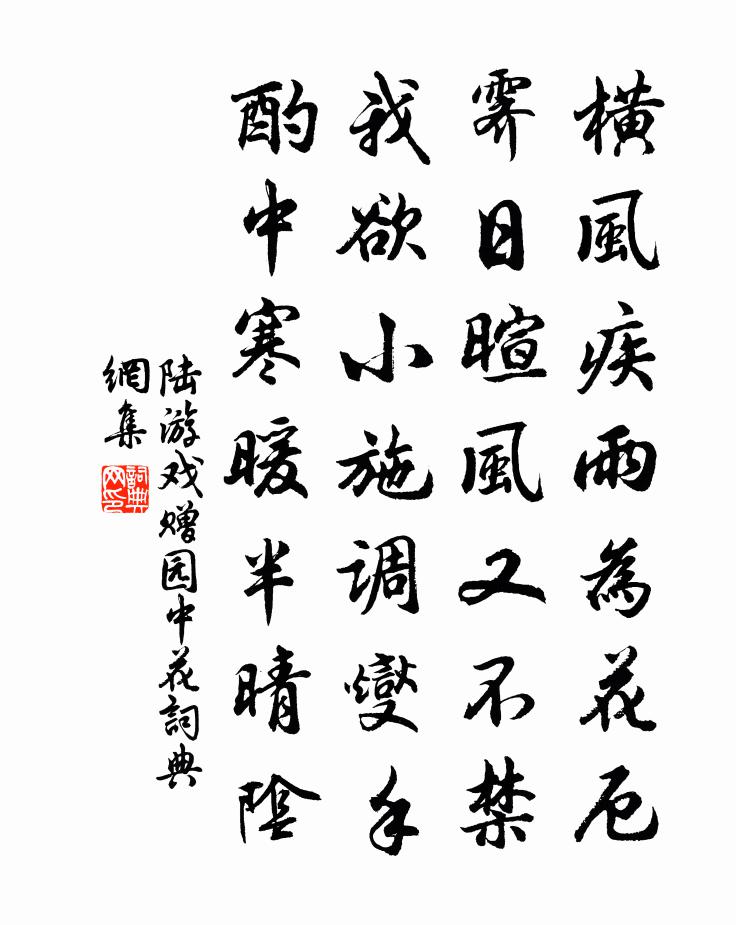 橫風疾雨為花厄
霽日暄風又不禁
我欲小施調燮手
酌中寒暖半晴陰
陆游戏赠园中花詞典
網集
詞典
网印